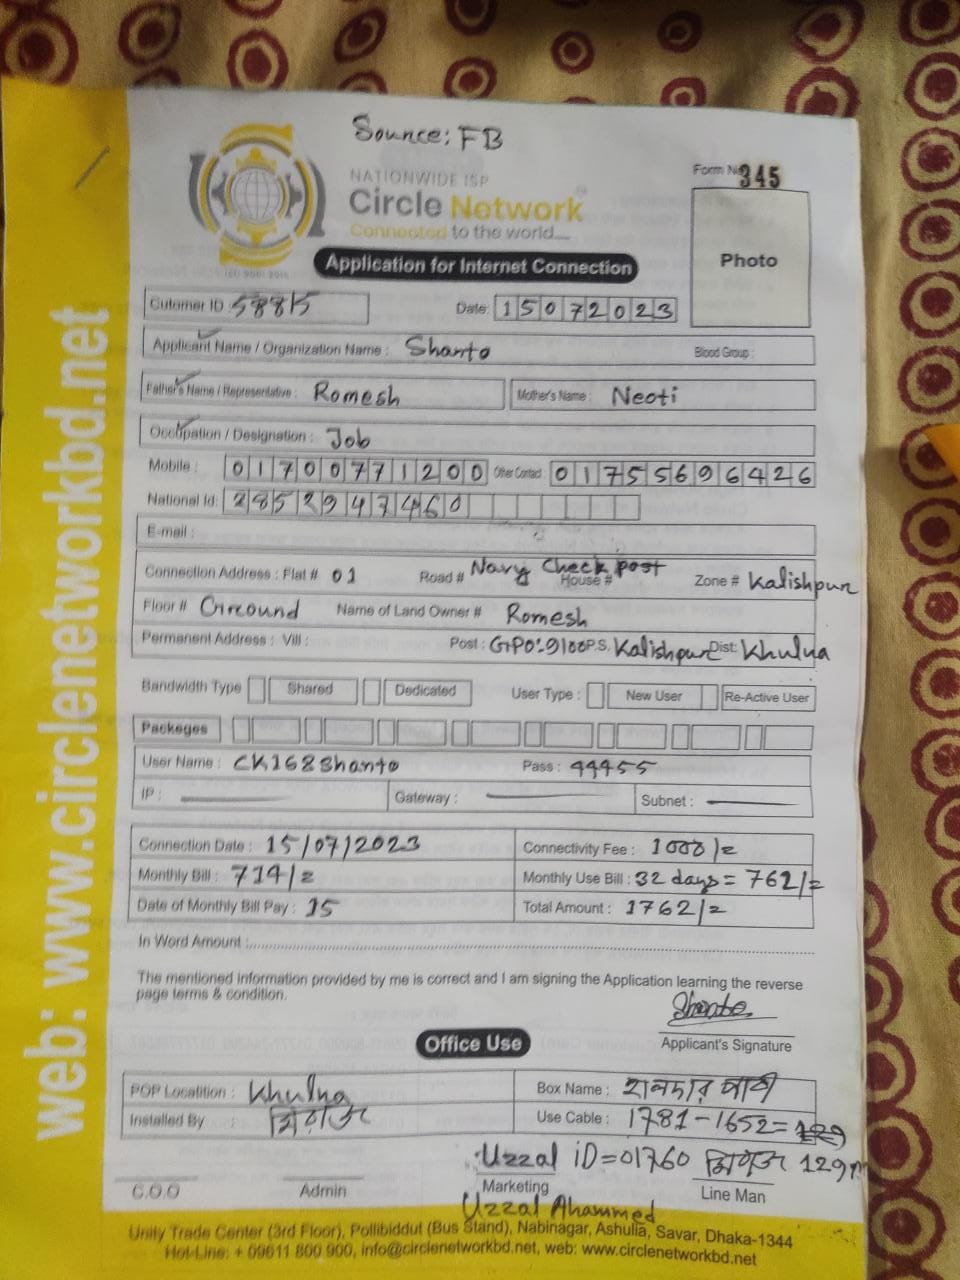 Sounce: FB
NATIONWIDE ISP
Circle Network
Connected to the world....
ISO 9001:2015
Form No 345
Photo
Application for Internet Connection
Cutomer ID : 58815
Date: 15072023
Applicant Name / Organization Name : Shanto Blood Group :
Father's Name / Representative : Romesh Mother's Name : Neoti
Occupation / Designation : Job
Mobile : 01700771200 Other Contact 01755696426
National Id: 2852947460
E-mail :
Connection Address : Flat # 01 Road # Navy Check post House # Zone # Kalishpur
Floor # Ground Name of Land Owner # Romesh
Permanent Address : Vill : Post : GPO:9100 P.S. Kalishpur Dist: Khulna
Bandwidth Type Shared Dedicated User Type : New User Re-Active User
Packeges
User Name : CK168Shanto Pass : 44455
IP : Gateway : Subnet :
Connection Date : 15/07/2023 Connectivity Fee : 1000/=
Monthly Bill : 714/= Monthly Use Bill : 32 days = 762/=
Date of Monthly Bill Pay : 15 Total Amount : 1762/=
In Word Amount :
The mentioned information provided by me is correct and I am signing the Application learning the reverse
page terms & condition.
Shanto
Applicant's Signature
Office Use
POP Locatition : Khulna Box Name : হালদার পাড়া
Installed By মিরাজ Use Cable : 1781-1652=129
Uzzal iD=01760 মিরাজ 129m
C.O.O Admin Marketing Line Man
Uzzal Ahammed
Unity Trade Center (3rd Floor), Pollibiddut (Bus Stand), Nabinagar, Ashulia, Savar, Dhaka-1344
Hot-Line: + 09611 800 900, info@circlenetworkbd.net, web: www.circlenetworkbd.net
web: www.circlenetworkbd.net